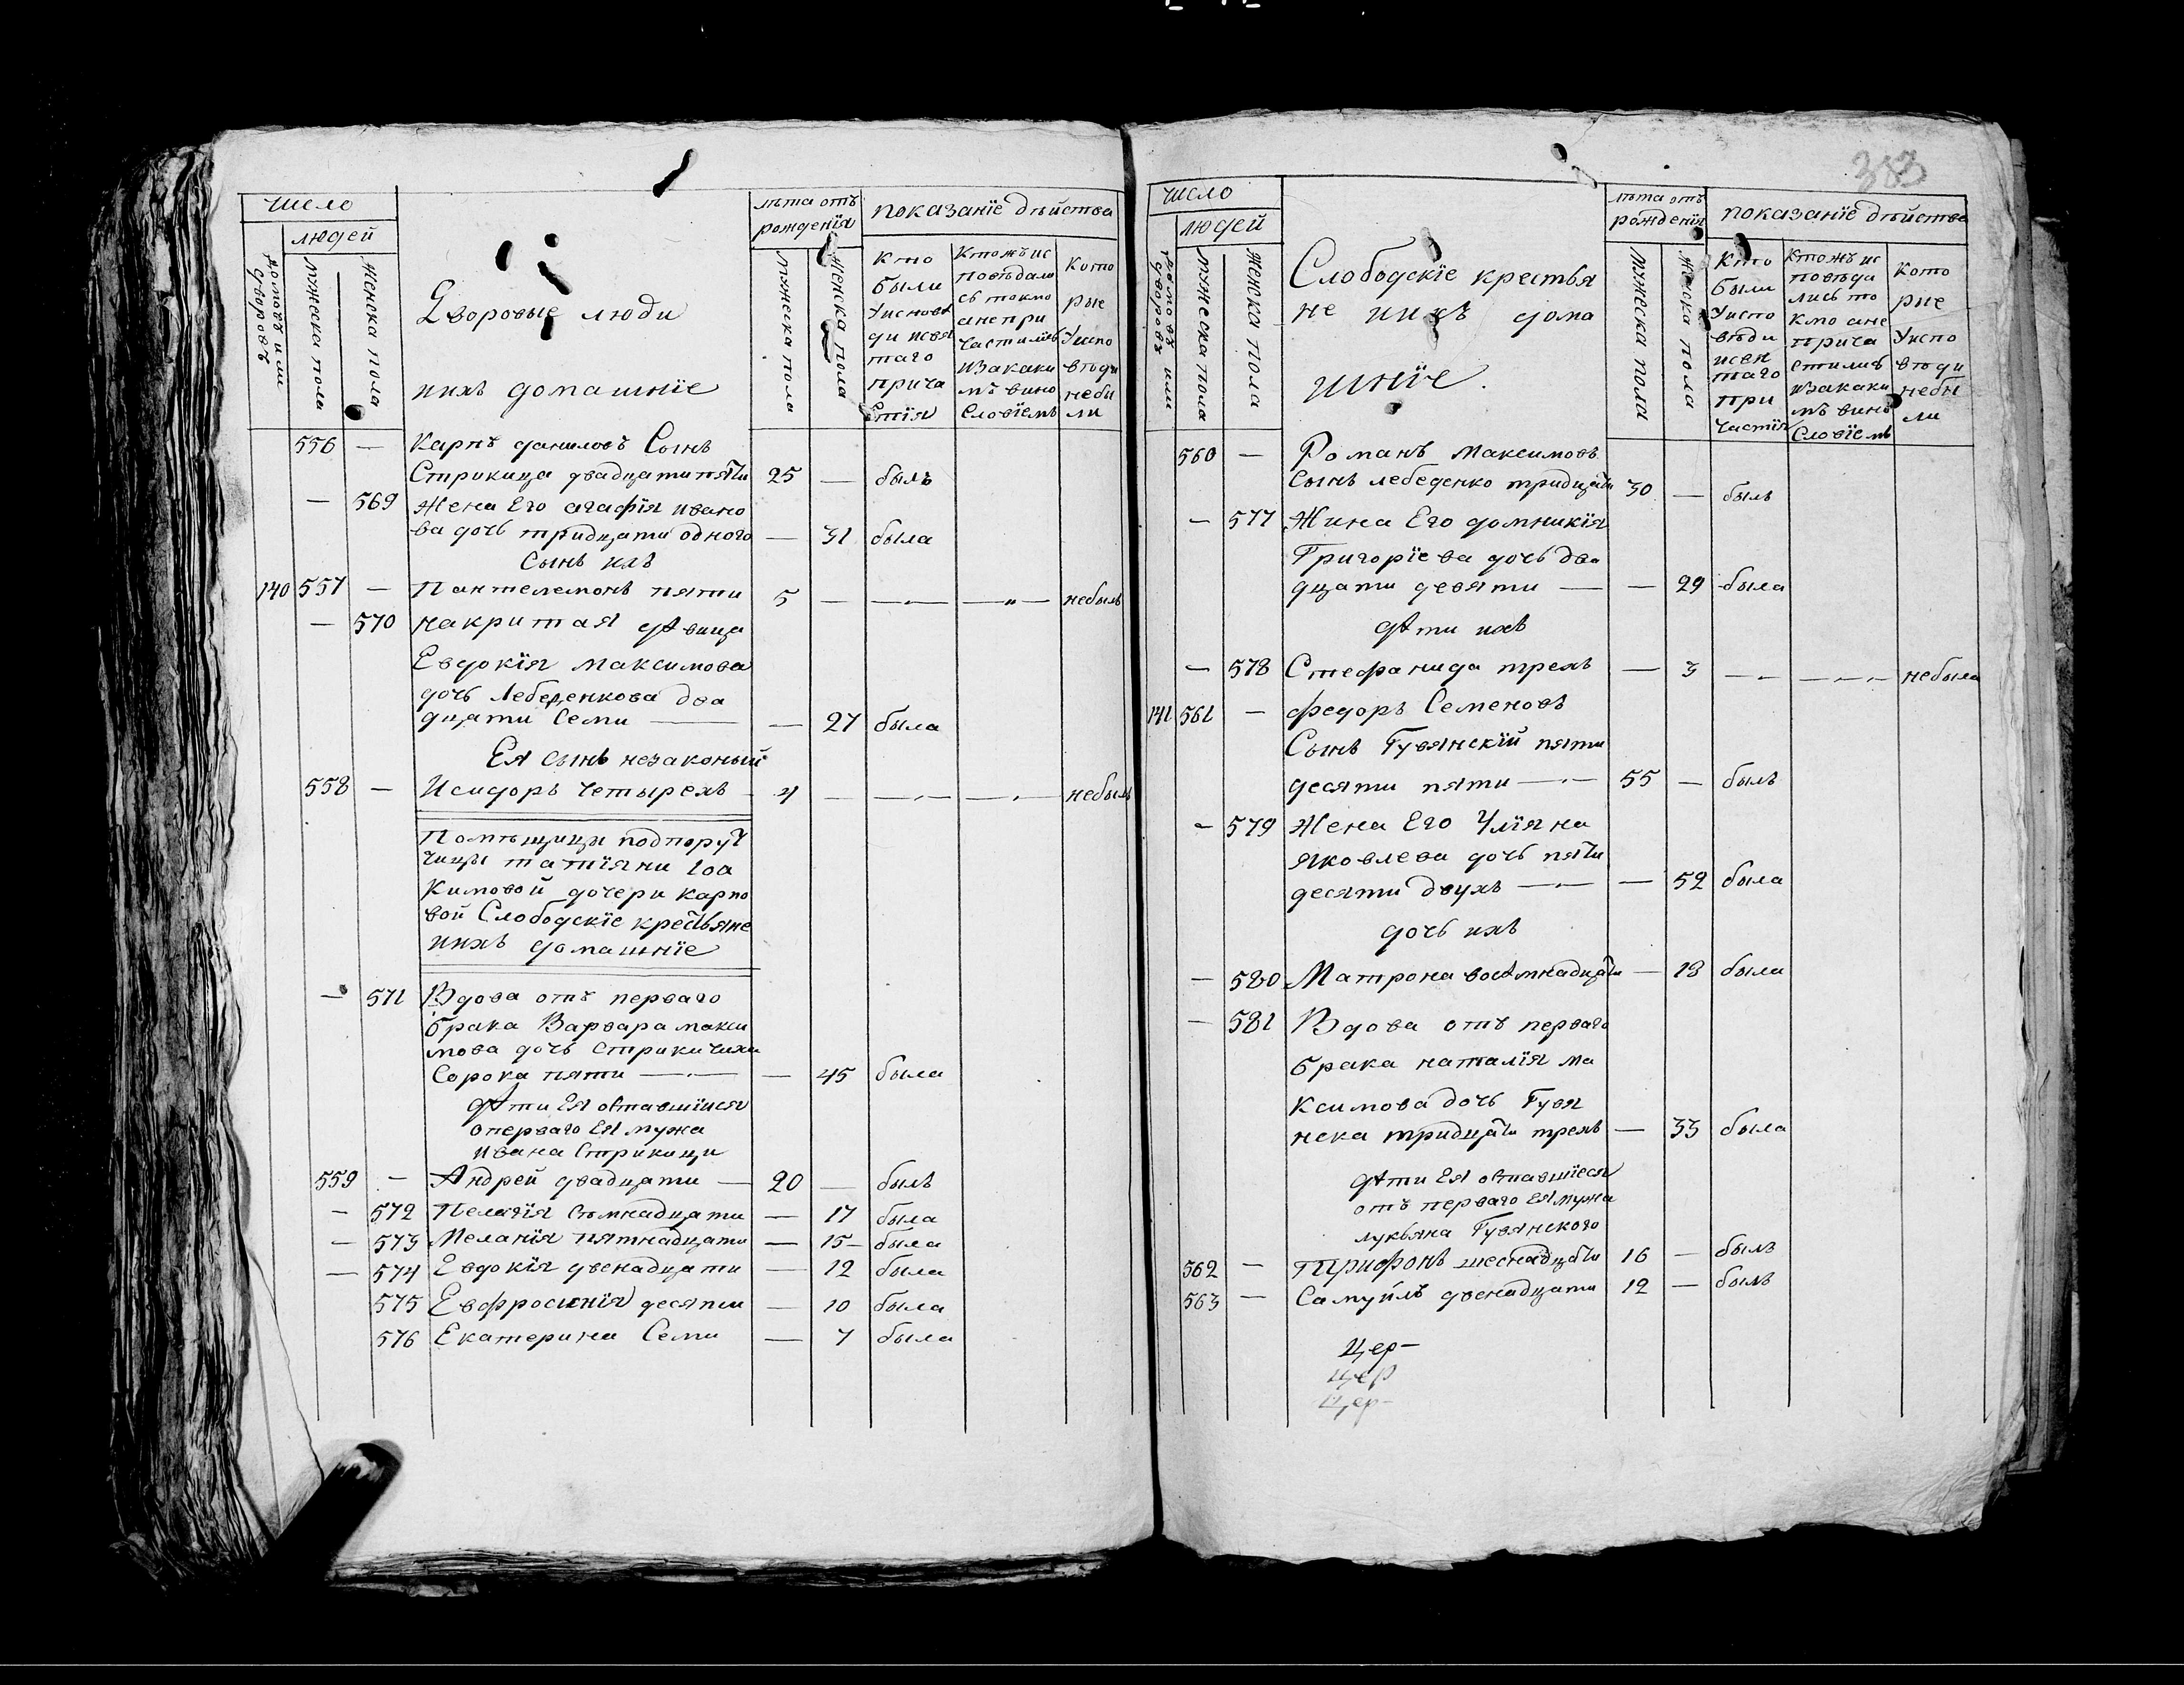 число
людей
домовъ или дворовъ
мужеска пола
женска пола
Дворовые люди
ихъ домашнїе
лѣта отъ рожденїя
мужеска пола
женска пола
показанїе дѣйства
Кто
были
У исповѣ
ди исвя
таго
прича
стїя
Ктожъ ис
повѣдали
сь токмо
ане при
частились
изакаки
мъ вино
словїемъ
Кото
рые
Уиспо
вѣди
небы
ли
556 — Карпъ даниловъ Сынъ
Стрикица двадцатипяти 25 — былъ
— 569 Жена Его агафїя ивано
ва дочь тридцати одного — 31 была
Сынъ ихъ
140 557 — Пантелемонъ пяти 5 — — — небылъ
— 570 накритая дѣвица
Евдокїя максимова
дочь Лебеденкова два
дцати Семи — — 27 была
Ея сынъ незаконый
558 — Исидоръ Четырехъ 4 — — — небылъ
Помѣщицы подпоруч
чицы татїяни Іоа
Кимовой дочери карпо
вой Слободскїе крестьяне
ихъ домашнїе
— 571 Вдова отъ перваго
брака Варвара макси
мова дочь стрикичиха
Сорока пяти — — 45 была
дѣти Ея оставшїися
оперваго Ея мужа
ивана Стрикици
559 — Андрей двадцати — 20 — былъ
— 572 Пелагїя Семнадцати — 17 была
— 573 Меланїя пятнадцати — 15 — была
— 574 Евдокїя двенадцати — 12 была
575 Евфросинїя десяти — 10 была
576 Екатерина Семи — 7 была
383
число
людей
домовъ или дворовъ
мужеска пола
женска пола
Слободскїе крестья
не ихъ дома
шнїе.
лѣта отъ
рожденїя
мужеска пола
женска пола
показанїе дѣйства
Кто
были
Уиспо
вѣди
исвя
таго
при
частїя
Ктожъ ис
повѣда
лись то
кмо ане
прича
стились
изакаки
мъ вино
Словїемъ
Кото
рые
Уиспо
вѣди
небы
ли
560 — Романъ Максимовъ
Сынъ лебеденко тридцати 30 — былъ
— 577 Жина Его домникїя
Григорїева дочь два
дцати девяти — — 29 была
дѣти ихъ
— 578 Стефанида трехъ — 3 — — небыла
141 561 — федоръ Семеновъ
Сынъ Гувянскїй пяти
десяти пяти — 55 — былъ
— 579 Жена Его Улїяна
Яковлева дочь пяти
десяти двухъ — — 52 была
дочь ихъ
— 580 Матрона восѣмнадцати — 18 была
— 581 Вдова отъ перваго
брака наталїя ма
ксимова дочь Гувя
нска тридцати трехъ — 33 была
дѣти Ея оставшїеся
отъ перваго Ея мужа
лукьяна Гувянского
562 — Трифонъ шеснадцати 16 — былъ
563 — Самуйлъ двенадцати 12 — былъ
Цер—
цер
Цер—